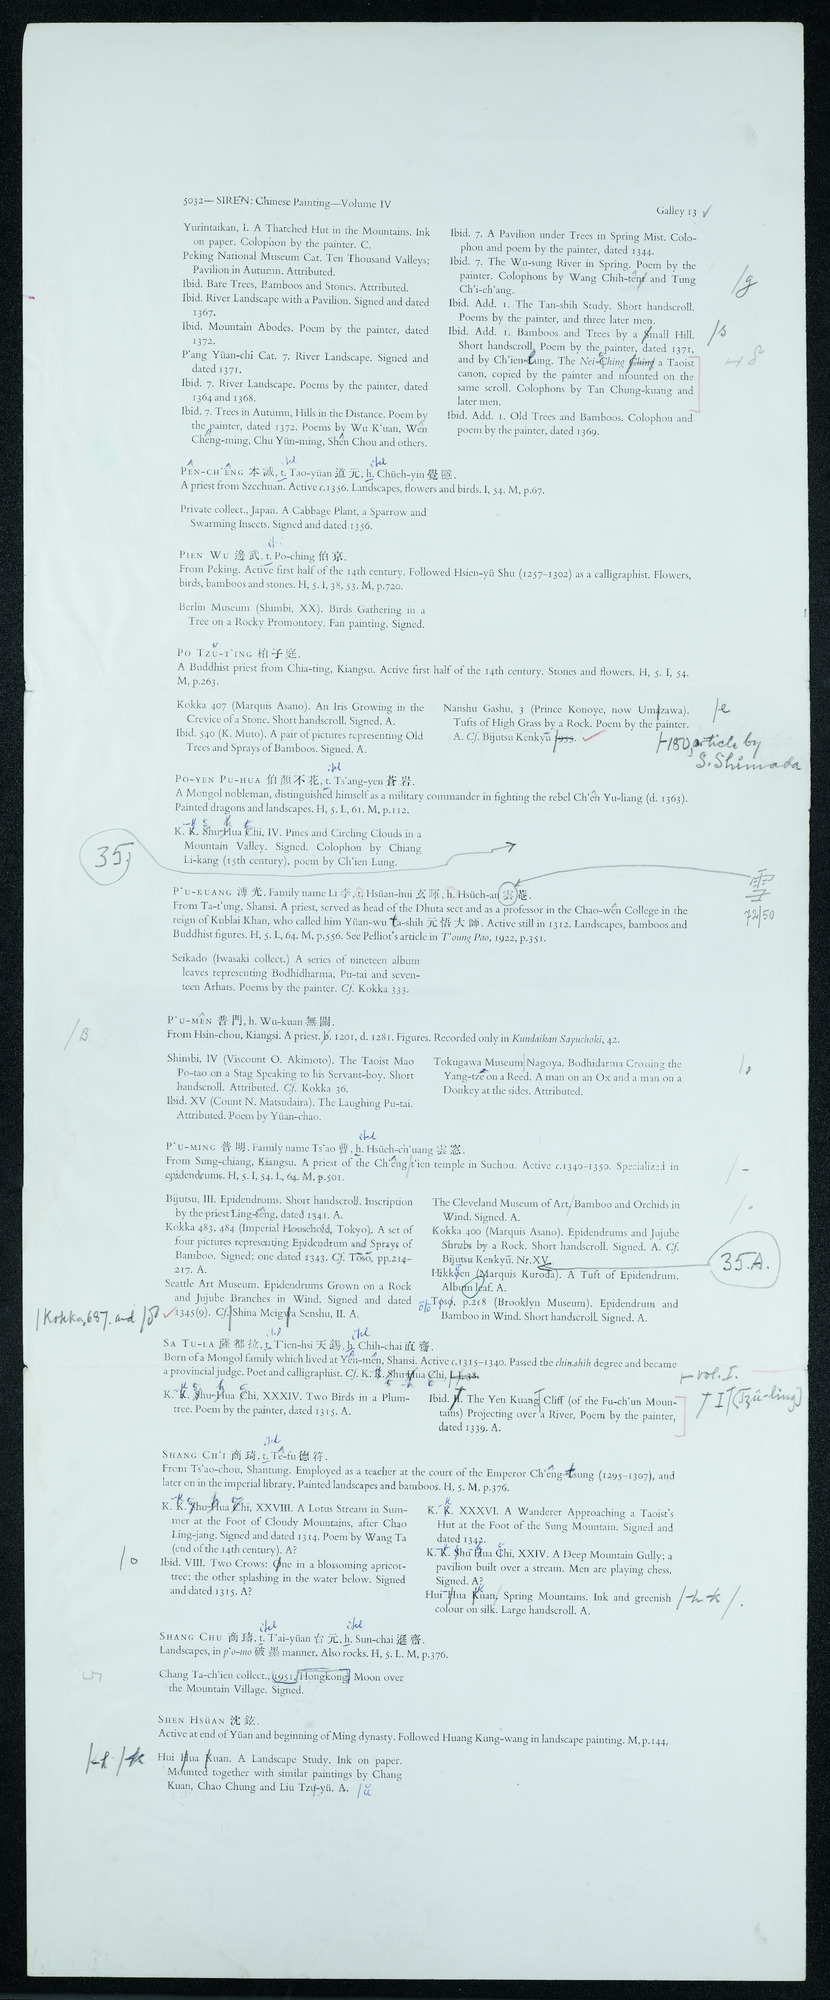 5032— SIREN: Chinese Painting—Volume IV
Galley 13 ✓
Yurintaikan, I. A Thatched Hut in the Mountains. Ink
on paper. Colophon by the painter. C.
Peking National Museum Cat. Ten Thousand Valleys;
Pavilion in Autumn. Attributed.
Ibid. Bare Trees, Bamboos and Stones. Attributed.
Ibid. River Landscape with a Pavilion. Signed and dated
1367.
Ibid. Mountain Abodes. Poem by the painter, dated
1372.
P'ang Yüan-chi Cat. 7. River Landscape. Signed and
dated 1371.
Ibid. 7. River Landscape. Poems by the painter, dated
1364 and 1368.
Ibid. 7. Trees in Autumn, Hills in the Distance. Poem by
the painter, dated 1372. Poems by Wu K'uan, Wên
Chêng-ming, Chu Yün-ming, Shên Chou and others.
Ibid. 7. A Pavilion under Trees in Spring Mist. Colo-
phon and poem by the painter, dated 1344.
Ibid. 7. The Wu-sung River in Spring. Poem by the
painter. Colophons by Wang Chih-ten and Tung
Ch'i-ch'ang.
/g
Ibid. Add. 1. The Tan-shih Study. Short handscroll.
Poems by the painter, and three later men.
Ibid. Add. 1. Bamboos and Trees by a Small Hill.
/s
Short handscroll, Poem by the painter, dated 1371,
and by Ch'ien-Lung. The Nei-Ching Ching a Taoist
canon, copied by the painter and mounted on the
same scroll. Colophons by Tan Chung-kuang and
later men.
Ibid. Add. 1. Old Trees and Bamboos. Colophon and
poem by the painter, dated 1369.
PÊN-CH'ÊNG 本誠, t. Tao-yüan 道元, h. Chüeh-yin 覺隱.
A priest from Szechuan. Active c.1356. Landscapes, flowers and birds. I, 54. M, p.67.
Private collect., Japan. A Cabbage Plant, a Sparrow and
Swarming Insects. Signed and dated 1356.
PIEN WU 邊武, t. Po-ching 伯京.
From Peking. Active first half of the 14th century. Followed Hsien-yü Shu (1257–1302) as a calligraphist. Flowers,
birds, bamboos and stones. H, 5. I, 38, 53. M, p.720.
Berlin Museum (Shimbi, XX). Birds Gathering in a
Tree on a Rocky Promontory. Fan painting. Signed.
PO TZU-T'ING 柏子庭.
A Buddhist priest from Chia-ting, Kiangsu. Active first half of the 14th century. Stones and flowers. H, 5. I, 54.
M, p.263.
Kokka 407 (Marquis Asano). An Iris Growing in the
Crevice of a Stone. Short handscroll. Signed. A.
Ibid. 540 (K. Muto). A pair of pictures representing Old
Trees and Sprays of Bamboos. Signed. A.
Nanshu Gashu, 3 (Prince Konoye, now Umazawa).
/e
Tufts of High Grass by a Rock. Poem by the painter.
A. Cf. Bijutsu Kenkyū 1955. ✓
180, article by
S. Shimada
PO-YEN PU-HUA 伯顏不花, t. Ts'ang-yen 蒼岩.
A Mongol nobleman, distinguished himself as a military commander in fighting the rebel Ch'ên Yu-liang (d. 1363).
Painted dragons and landscapes. H, 5. L, 61. M, p.112.
K. K. Shu-Hua Chi, IV. Pines and Circling Clouds in a
Mountain Valley. Signed. Colophon by Chiang
Li-kang (15th century), poem by Ch'ien Lung.
35
雪
72/50
P'U-KUANG 溥光. Family name Li 李, t. Hsüan-hui 玄暉, h. Hsüeh-an 雲菴.
From Ta-t'ung, Shansi. A priest, served as head of the Dhuta sect and as a professor in the Chao-wên College in the
reign of Kublai Khan, who called him Yüan-wu ta-shih 元悟大師. Active still in 1312. Landscapes, bamboos and
Buddhist figures. H, 5. L, 64. M, p.556. See Pelliot's article in T'oung Pao, 1922, p.351.
Seikado (Iwasaki collect.) A series of nineteen album
leaves representing Bodhidharma, Pu-tai and seven-
teen Arhats. Poems by the painter. Cf. Kokka 333.
P'U-MÊN 普門, h. Wu-kuan 無關.
/B
From Hsin-chou, Kiangsi. A priest, b. 1201, d. 1281. Figures. Recorded only in Kundaikan Sayuchoki, 42.
Shimbi, IV (Viscount O. Akimoto). The Taoist Mao
Po-tao on a Stag Speaking to his Servant-boy. Short
handscroll. Attributed. Cf. Kokka 36.
Ibid. XV (Count N. Matsudaira). The Laughing Pu-tai.
Attributed. Poem by Yüan-chao.
Tokugawa Museum Nagoya. Bodhidarma Crossing the
/,
Yang-tze on a Reed. A man on an Ox and a man on a
Donkey at the sides. Attributed.
P'U-MING 普明. Family name Ts'ao 曹, h. Hsüch-ch'uang 雲窓.
From Sung-chiang, Kiangsu. A priest of the Ch'êng t'ien temple in Suchou. Active c.1340–1350. Specialized in
/-
epidendrums. H, 5. I, 54. L, 64. M, p.501.
Bijutsu, III. Epidendrums. Short handscroll. Inscription
by the priest Ling-fêng, dated 1341. A.
Kokka 483, 484 (Imperial Household, Tokyo). A set of
four pictures representing Epidendrum and Sprays of
Bamboo. Signed; one dated 1343. Cf. Tōsō, pp.214–
217. A.
Seattle Art Museum. Epidendrums Grown on a Rock
and Jujube Branches in Wind. Signed and dated
/Kokka, 687. and
1345(9). Cf. Shina Meigwa Senshu, II. A.
The Cleveland Museum of Art, Bamboo and Orchids in
/.
Wind. Signed. A.
Kokka 400 (Marquis Asano). Epidendrums and Jujube
Shrubs by a Rock. Short handscroll. Signed. A. Cf.
Bijutsu Kenkyū. Nr. XV.
35.A.
Hikkoen (Marquis Kuroda). A Tuft of Epidendrum.
Album leaf. A.
Toso, p.218 (Brooklyn Museum). Epidendrum and
Bamboo in Wind. Short handscroll. Signed. A.
SA TU-LA 薩都拉, t. T'ien-hsi 天錫, h. Chih-chai 直齋.
Born of a Mongol family which lived at Yên-mên, Shansi. Active c.1315–1340. Passed the chin.shih degree and became
a provincial judge. Poet and calligraphist. Cf. K. K. Shu-Hua Chi,
vol. I.
K. K. Shu-Hua Chi, XXXIV. Two Birds in a Plum-
tree. Poem by the painter, dated 1315. A.
Ibid. II. The Yen Kuang Cliff (of the Fu-ch'un Moun-
(Tzŭ-ling)
tains) Projecting over a River, Poem by the painter,
dated 1339. A.
SHANG CH'I 商琦, t. Tê-fu 德符.
From Ts'ao-chou, Shantung. Employed as a teacher at the court of the Emperor Ch'êng-tsung (1295–1307), and
later on in the imperial library. Painted landscapes and bamboos. H, 5. M, p.376.
K. K. Shu-Hua Chi, XXVIII. A Lotus Stream in Sum-
mer at the Foot of Cloudy Mountains, after Chao
Ling-jang. Signed and dated 1314. Poem by Wang Ta
(end of the 14th century). A?
/o
Ibid. VIII. Two Crows: One in a blossoming apricot-
tree; the other splashing in the water below. Signed
and dated 1315. A?
K. K. XXXVI. A Wanderer Approaching a Taoist's
Hut at the Foot of the Sung Mountain. Signed and
dated 1342.
K. K. Shu Hua Chi, XXIV. A Deep Mountain Gully; a
pavilion built over a stream. Men are playing chess.
Signed. A?
Hui-Hua Kuan, Spring Mountains. Ink and greenish
/-h k/.
colour on silk. Large handscroll. A.
SHANG CHU 商璹, t. T'ai-yüan 台元, h. Sun-chai 遜齋.
Landscapes, in p'o-mo 破墨 manner. Also rocks. H, 5. L. M, p.376.
Chang Ta-ch'ien collect., 1951, Hongkong. Moon over
the Mountain Village. Signed.
SHEN HSÜAN 沈鉉.
Active at end of Yüan and beginning of Ming dynasty. Followed Huang Kung-wang in landscape painting. M, p.144.
/-h /k
Hui Hua Kuan. A Landscape Study. Ink on paper.
Mounted together with similar paintings by Chang
Kuan, Chao Chung and Liu Tzu-yü. A. /ŭ